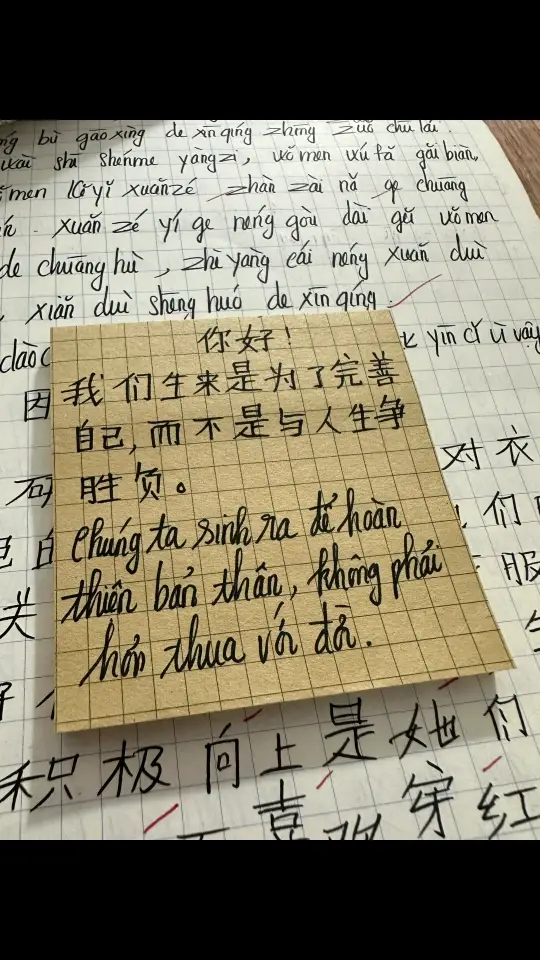 bù gāoxìng de xīnqíng zhōng zuǒ chū lái.
shì shénme yàngzi, wǒmen wúfǎ gǎibiàn,
men kěyǐ xuǎnzé zhàn zài nǎ ge chuāng
xuǎn zé yí ge néng gòu dài gěi wǒmen
de chuānghù, zhè yàng cái néng xuǎn duì
xiǎn duì shēng huó de xīn qíng.
你好!
我们生来是为了完善
自己,而不是与人生争
胜负。
Chúng ta sinh ra để hoàn
thiện bản thân, không phải
hơn thua với đời.
因
对衣
们
服
积极向上是她们
喜欢穿红